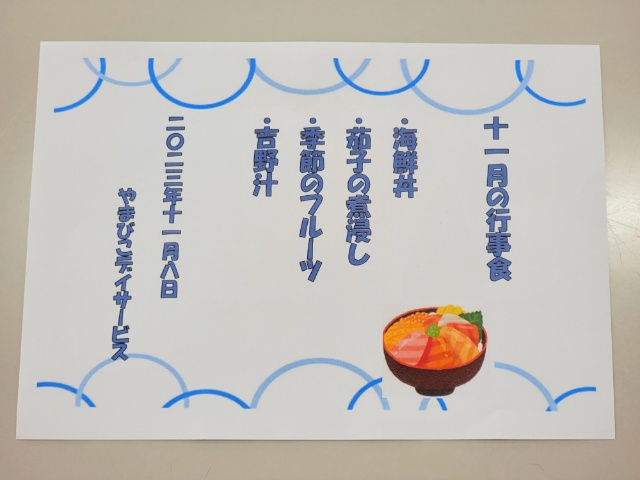 十一月の行事食
・海鮮丼
・茄子の煮浸し
・季節のフルーツ
・吉野汁
二〇二三年十一月八日
やまびこデイサービス